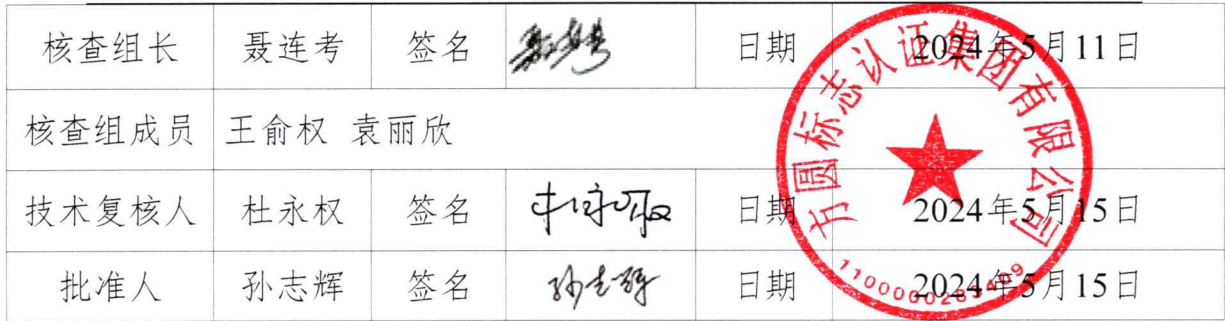 核查组长 聂连考 签名 聂连考 日期 2024年5月11日
核查组成员 王俞权 袁丽欣
技术复核人 杜永权 签名 杜永权 日期 2024年5月15日
批准人 孙志辉 签名 孙志辉 日期 2024年5月15日
方圆标志认证集团有限公司